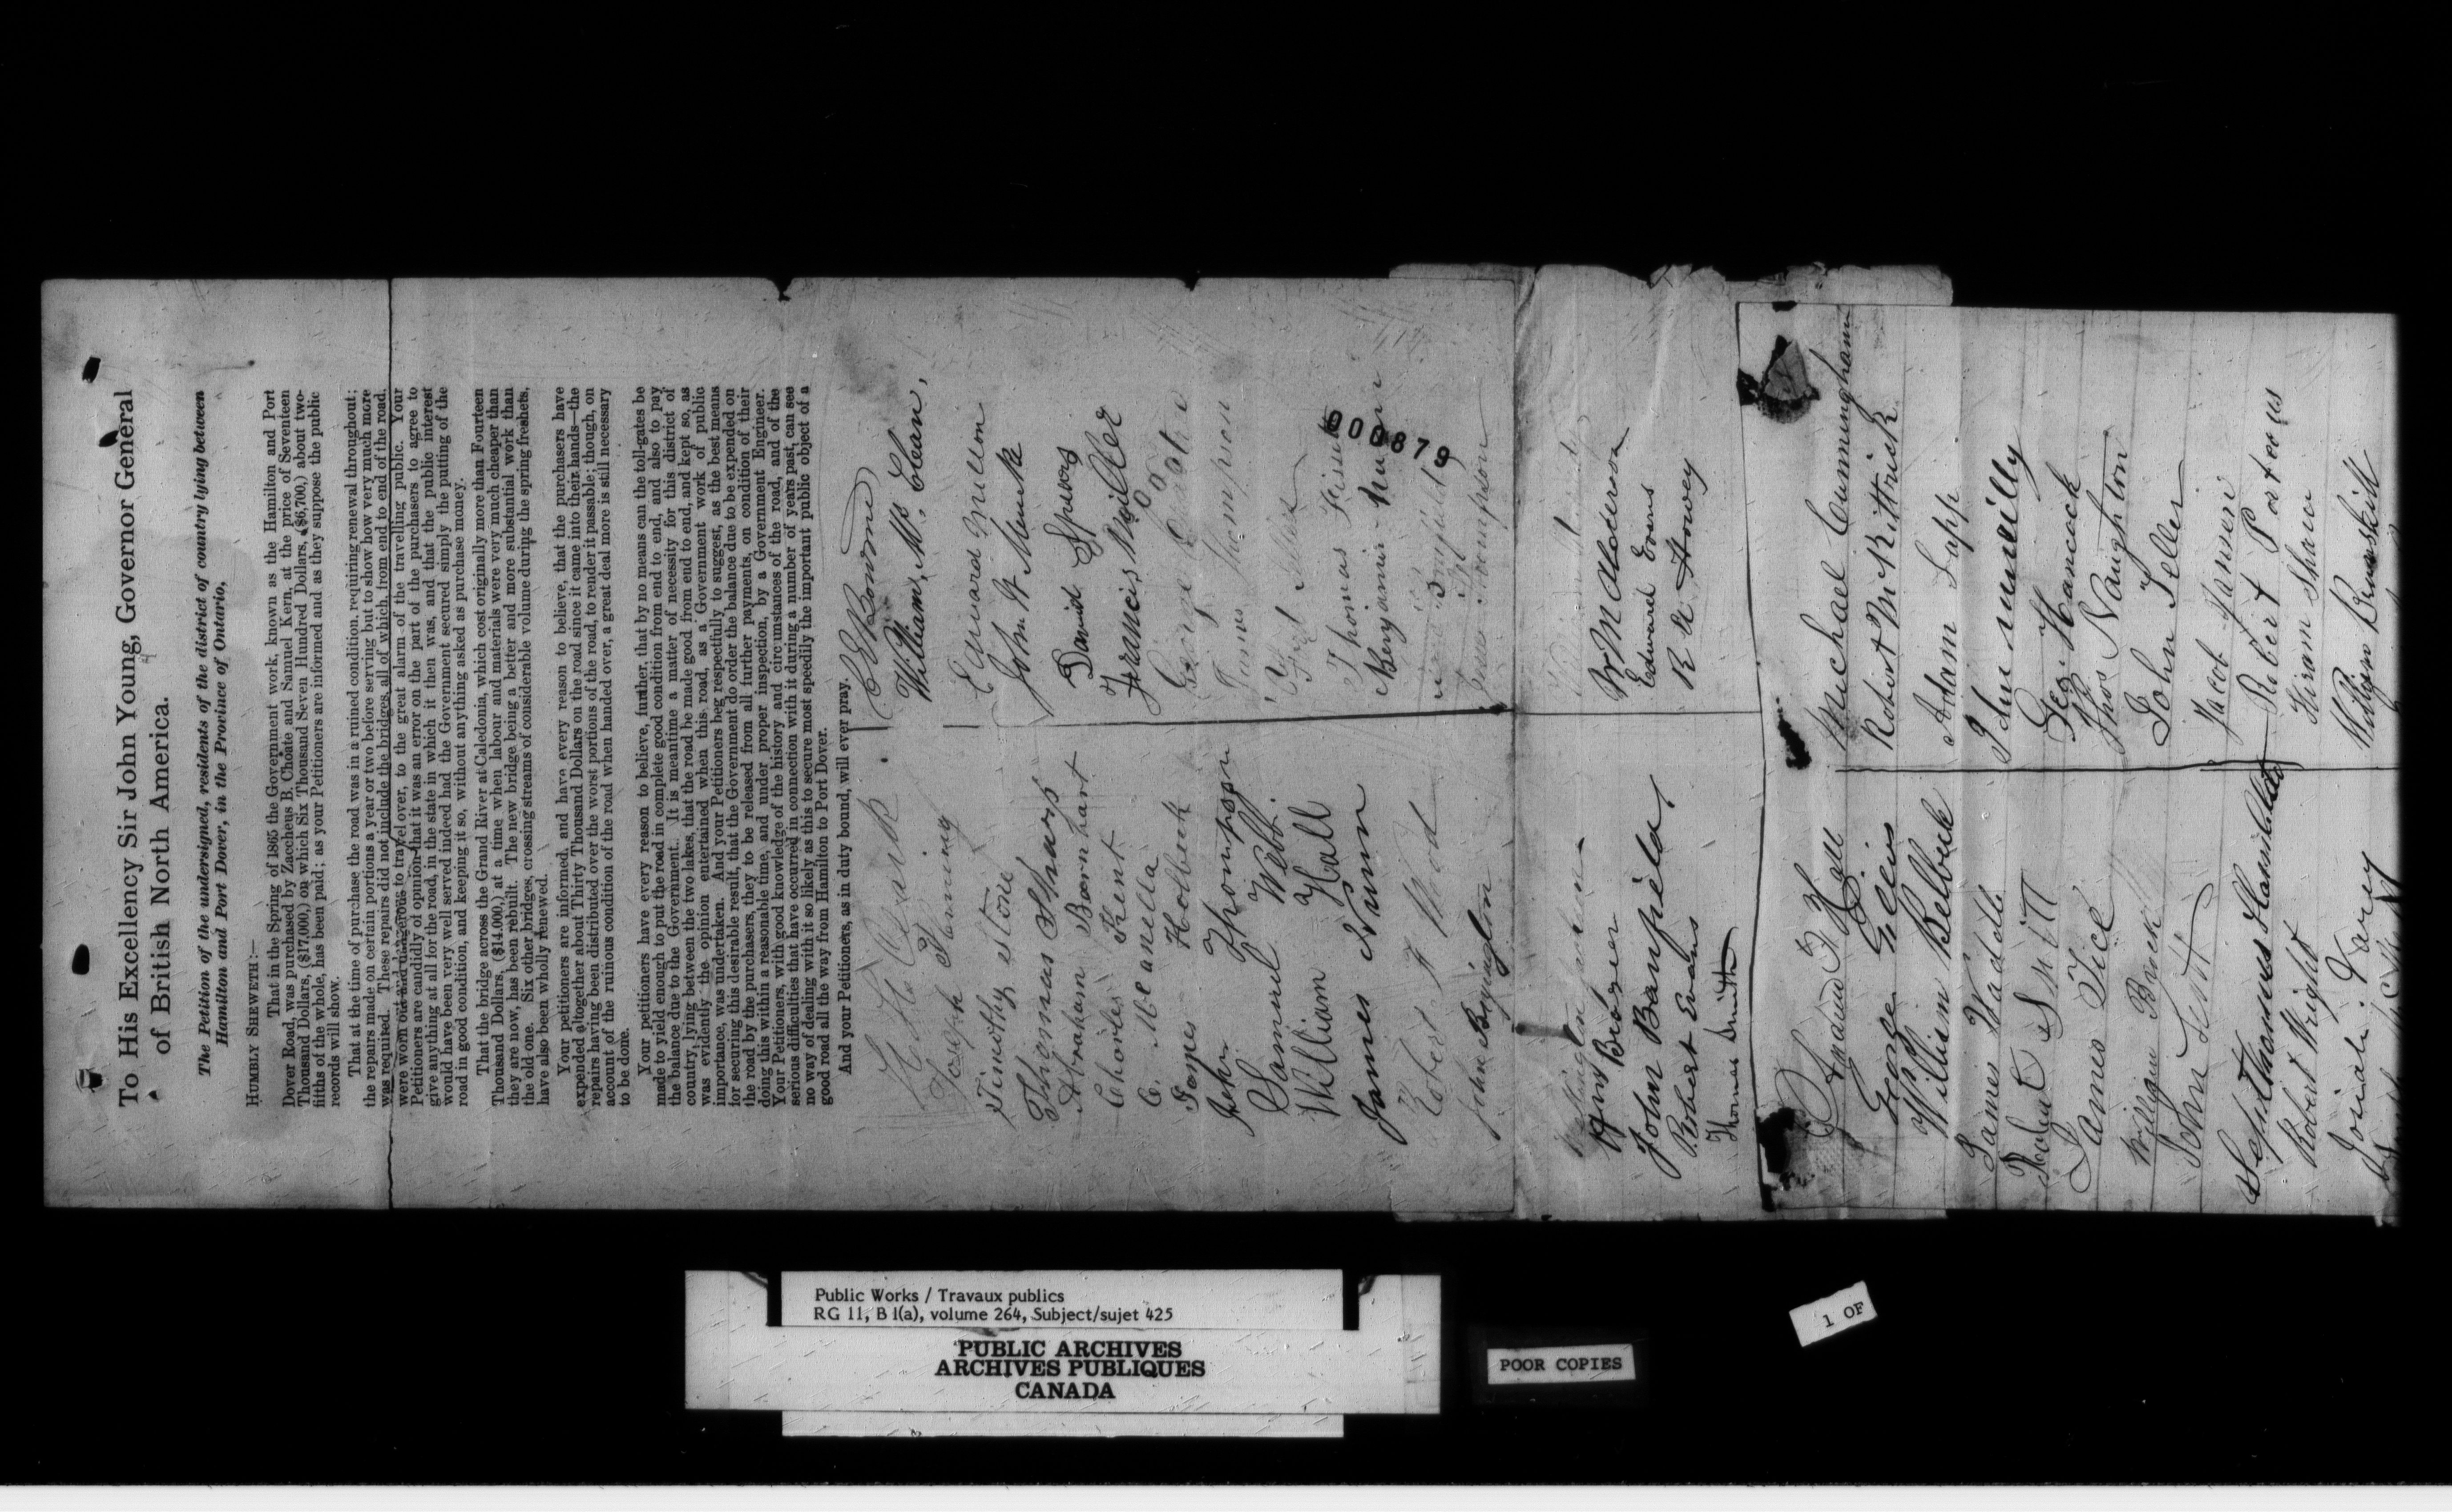 To His Excellency Sir John Young, Governor General
of British North America.
The Petition of the undersigned, residents of the district of country lying between
Hamilton and Port Dover, in the Province of Ontario,
HUMBLY SHEWETH:—
That in the Spring of 1865 the Government work, known as the Hamilton and Port
Dover Road, was purchased by Zaccheus B. Choate and Samuel Kern, at the price of Seventeen
Thousand Dollars, ($17,000,) on which Six Thousand Seven Hundred Dollars, ($6,700,) about two-
fifths of the whole, has been paid; as your Petitioners are informed and as they suppose the public
records will show.
That at the time of purchase the road was in a ruined condition, requiring renewal throughout;
the repairs made on certain portions a year or two before serving but to show how very much more
was required. These repairs did not include the bridges, all of which, from end to end of the road,
were worn out and dangerous to travel over, to the great alarm of the travelling public. Your
Petitioners are candidly of opinion that it was an error on the part of the purchasers to agree to
give anything at all for the road, in the state in which it then was, and that the public interest
would have been very well served indeed had the Government secured simply the putting of the
road in good condition, and keeping it so, without anything asked as purchase money.
That the bridge across the Grand River at Caledonia, which cost originally more than Fourteen
Thousand Dollars, ($14.000,) at a time when labour and materials were very much cheaper than
they are now, has been rebuilt. The new bridge being a better and more substantial work than
the old one. Six other bridges, crossing streams of considerable volume during the spring freshets,
have also been wholly renewed.
Your petitioners are informed, and have every reason to believe, that the purchasers have
expended altogether about Thirty Thousand Dollars on the road since it came into their hands—the
repairs having been distributed over the worst portions of the road, to render it passable; though, on
account of the ruinous condition of the road when handed over, a great deal more is still necessary
to be done.
Your petitioners have every reason to believe, further, that by no means can the toll-gates be
made to yield enough to put the road in complete good condition from end to end, and also to pay
the balance due to the Government. It is meantime a matter of necessity for this district of
country, lying between the two lakes, that the road be made good from end to end, and kept so, as
was evidently the opinion entertained when this road, as a Government work of public
importance, was undertaken. And your Petitioners beg respectfully to suggest, as the best means
for securing this desirable result, that the Government do order the balance due to be expended on
the road by the purchasers, they to be released from all further payments, on condition of their
doing this within a reasonable time, and under proper inspection, by a Government Engineer.
Your Petitioners, with good knowledge of the history and circumstances of the road, and of the
serious difficulties that have occurred in connection with it during a number of years past, can see
no way of dealing with it so likely as this to secure most speedily the important public object of a
good road all the way from Hamilton to Port Dover.
And your Petitioners, as in duty bound, will ever pray.
Joseph Fleming
Timothy
Thomas Sharp
Abraham Barnhart
Charles Kent
James Holbeck
John Thompson
Samuel Webb
William Hall
James Nunn
Robert Wood
John Boyington
C E Bourne
William McClean,
Edward
John W
David Spears
Francis Miller
George Choate
James Thompson
Thomas
Benjamin Nunn
Thompson
000879
John Banfield
Robert Evans
Thomas Smith
Wm Alderson
Edward Evans
R A Howey
George
William Belbeck
James Waddle
Robert Smith
James Tice
William Brock
John Scott
Septhamus Hamilton
Robert Wright
Josiah
Michael Cunningham
Robert McKittrick
Adam Lapp
John
Geo. Hancock
Thos Naughton
John
Jacob Jansen
Robert Porteous
Hiram Shaw
William Brunskill
Public Works / Travaux publics
RG 11, B 1(a), volume 264, Subject/sujet 425
PUBLIC ARCHIVES
ARCHIVES PUBLIQUES
CANADA
POOR COPIES
1 OF